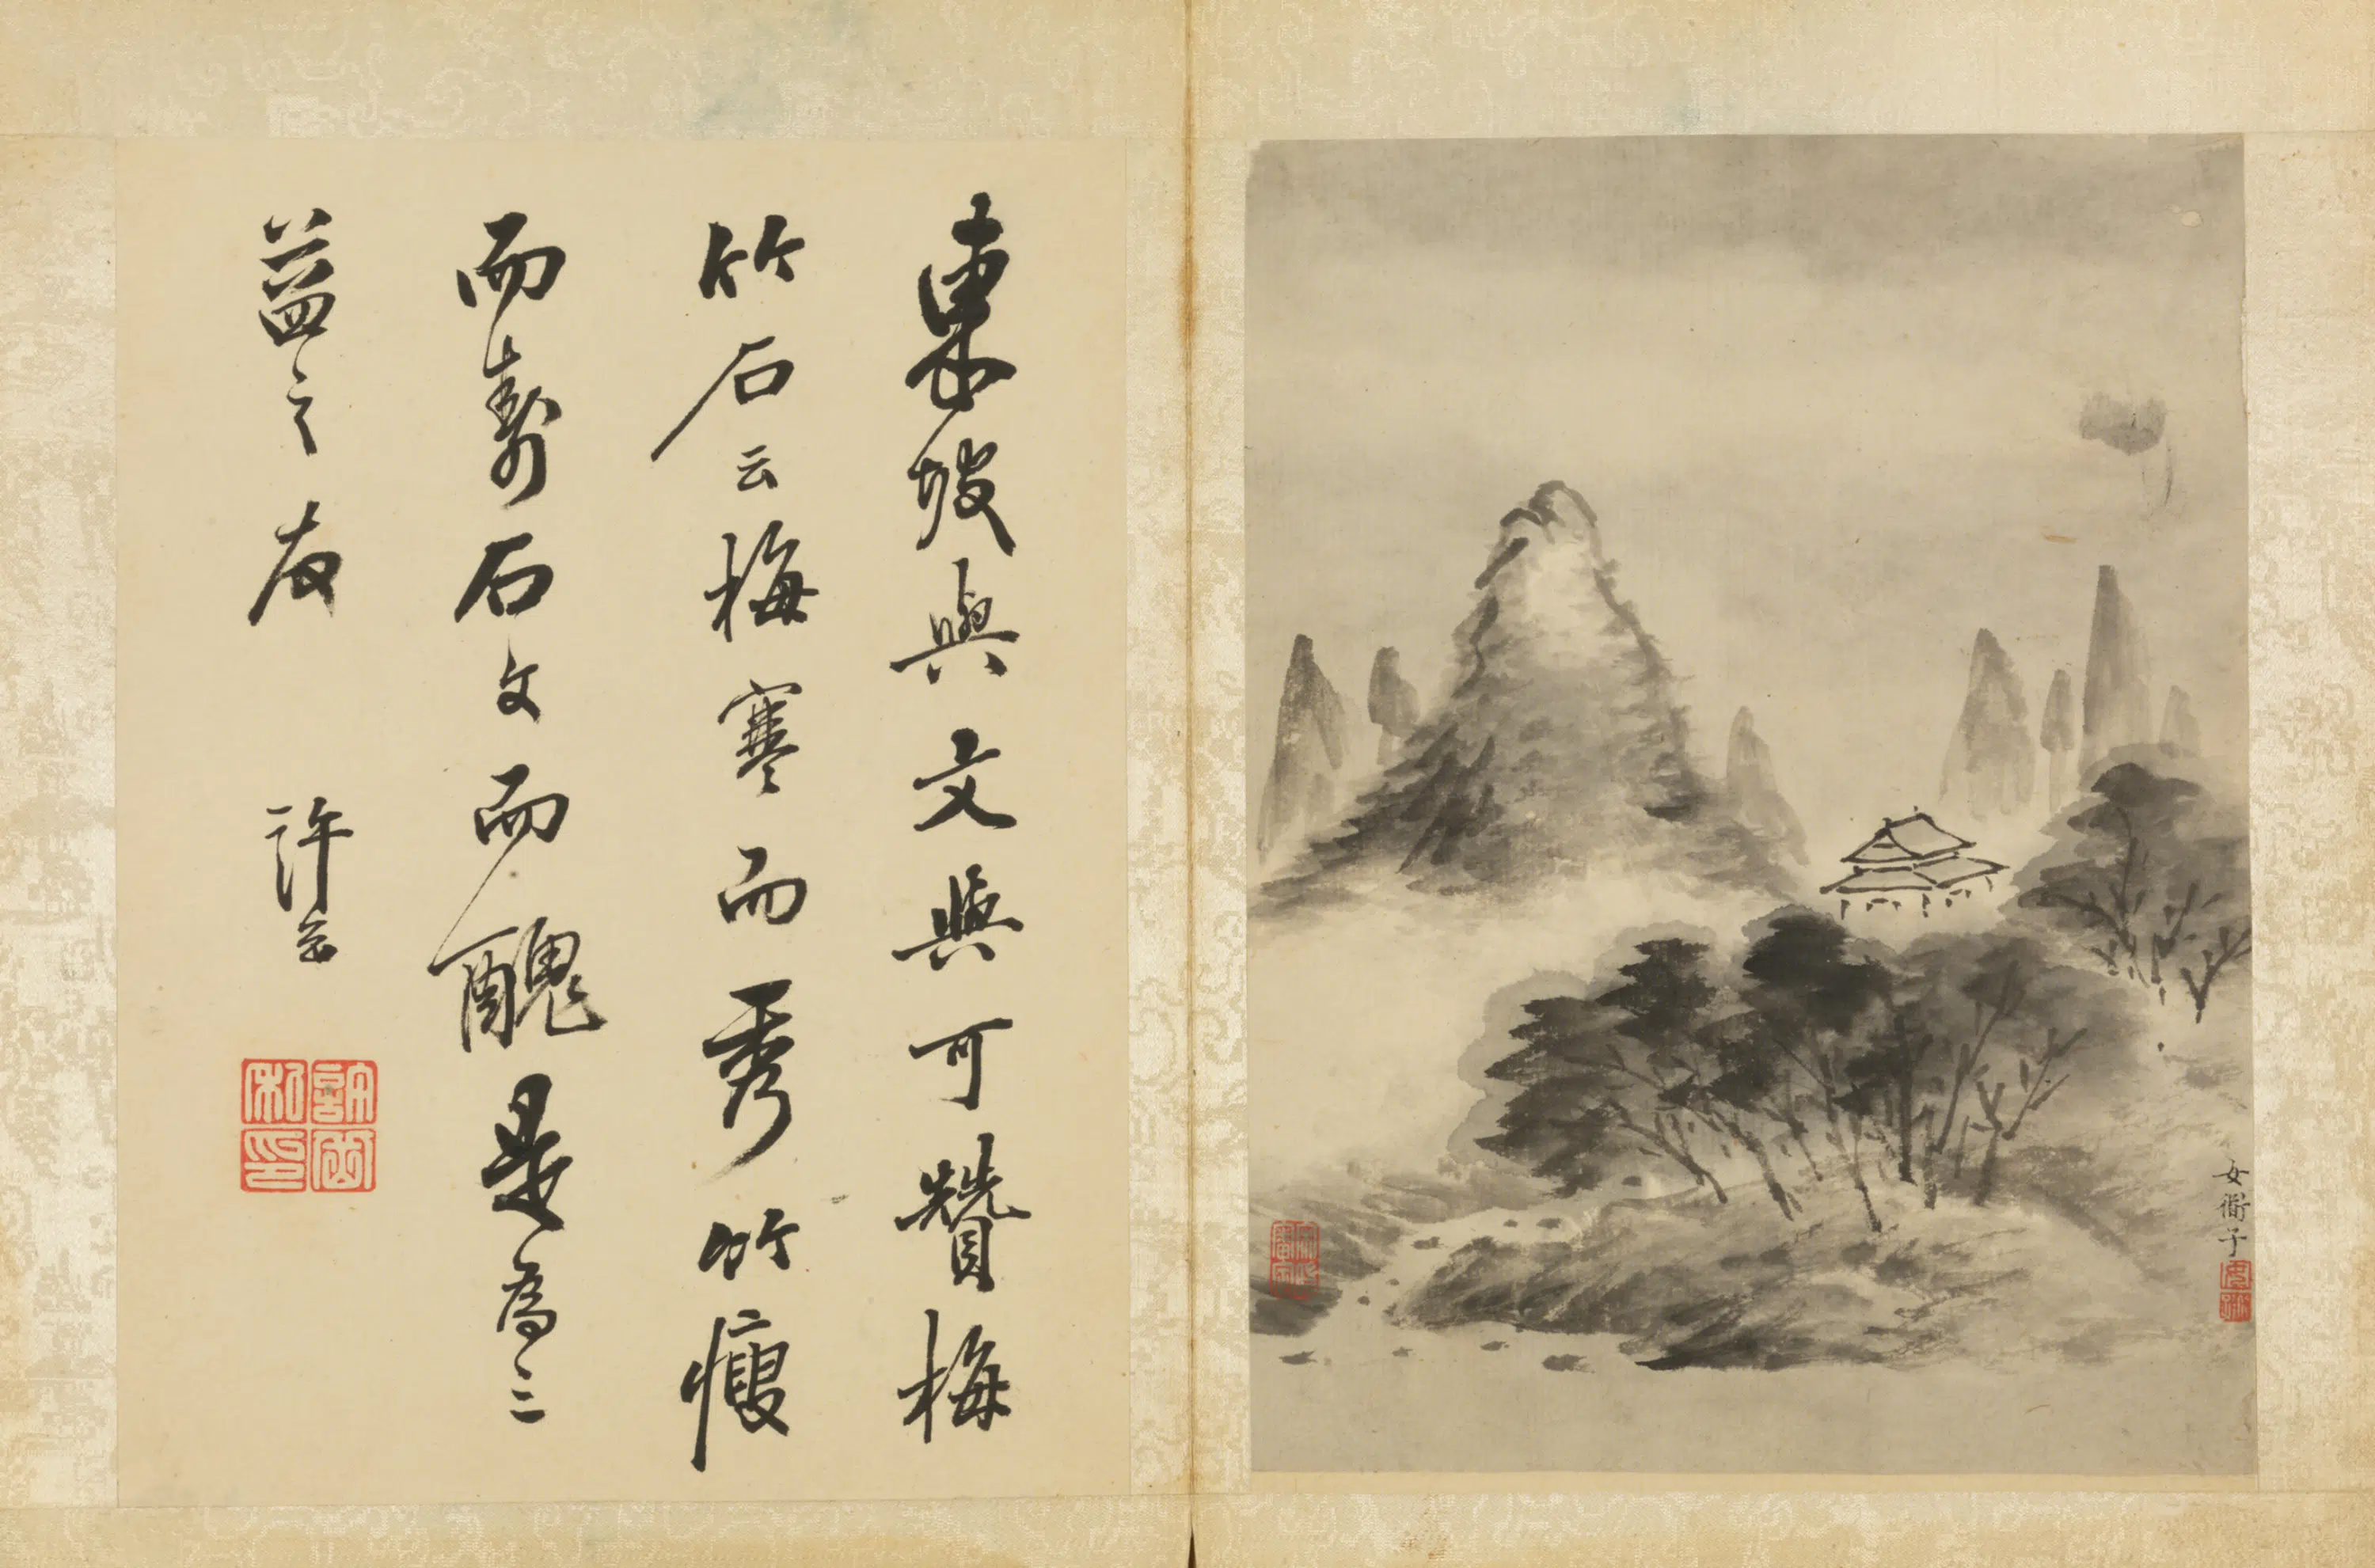 東坡與文與可贊梅
竹石云梅寒而秀竹瘦
而壽石文而醜是為三
益之友 許